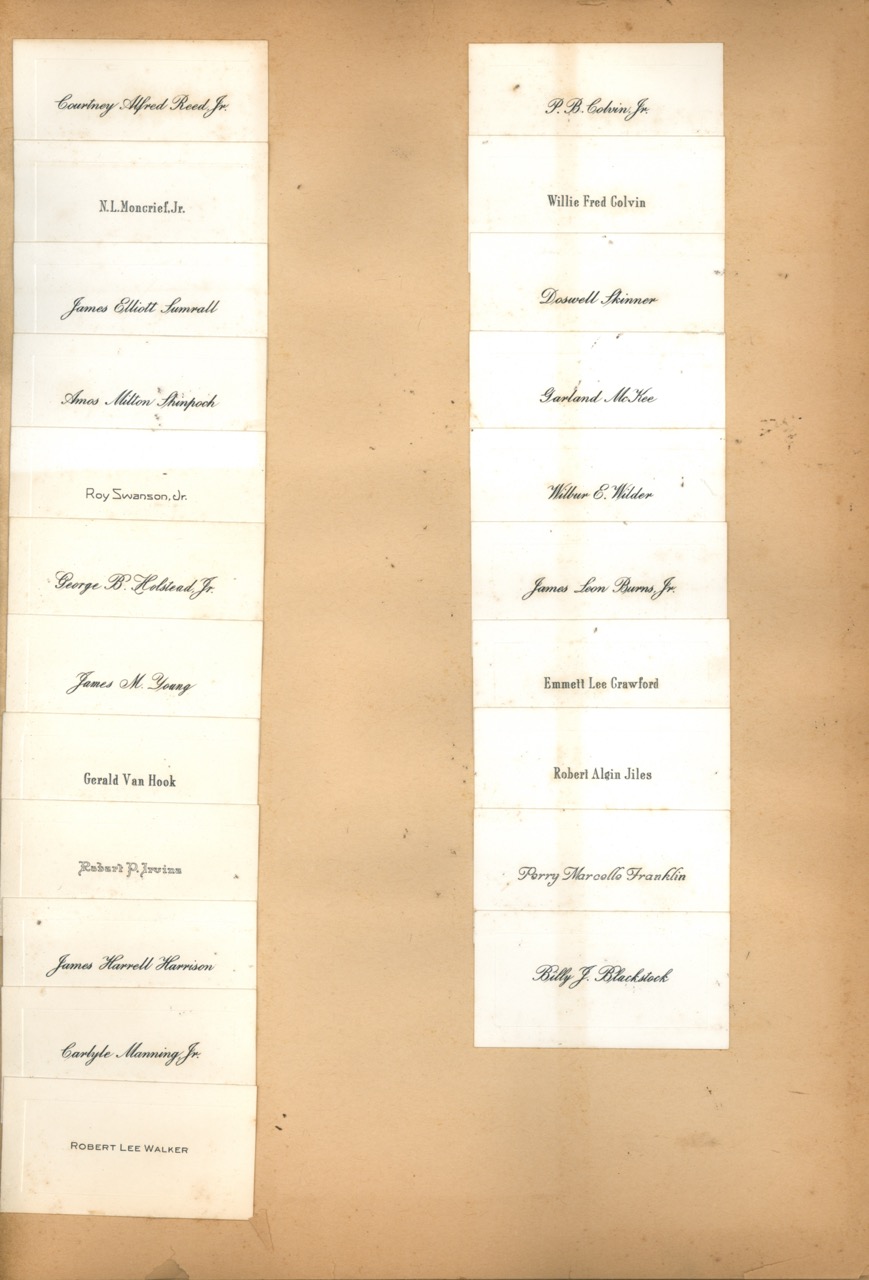 Courtney Alfred Reed, Jr.
N.L. Moncrief, Jr.
James Elliott Sumrall
Amos Milton Shinpoch
Roy Swanson, Jr.
George B. Holstead, Jr.
James M. Young
Gerald Van Hook
Robert P. Irvine
James Harrell Harrison
Carlyle Manning, Jr.
ROBERT LEE WALKER
P. B. Colvin, Jr.
Willie Fred Colvin
Doswell Skinner
Garland McKee
Wilbur E. Wilder
James Leon Burns, Jr.
Emmett Lee Crawford
Robert Algin Jiles
Perry Marcello Franklin
Billy J. Blackstock